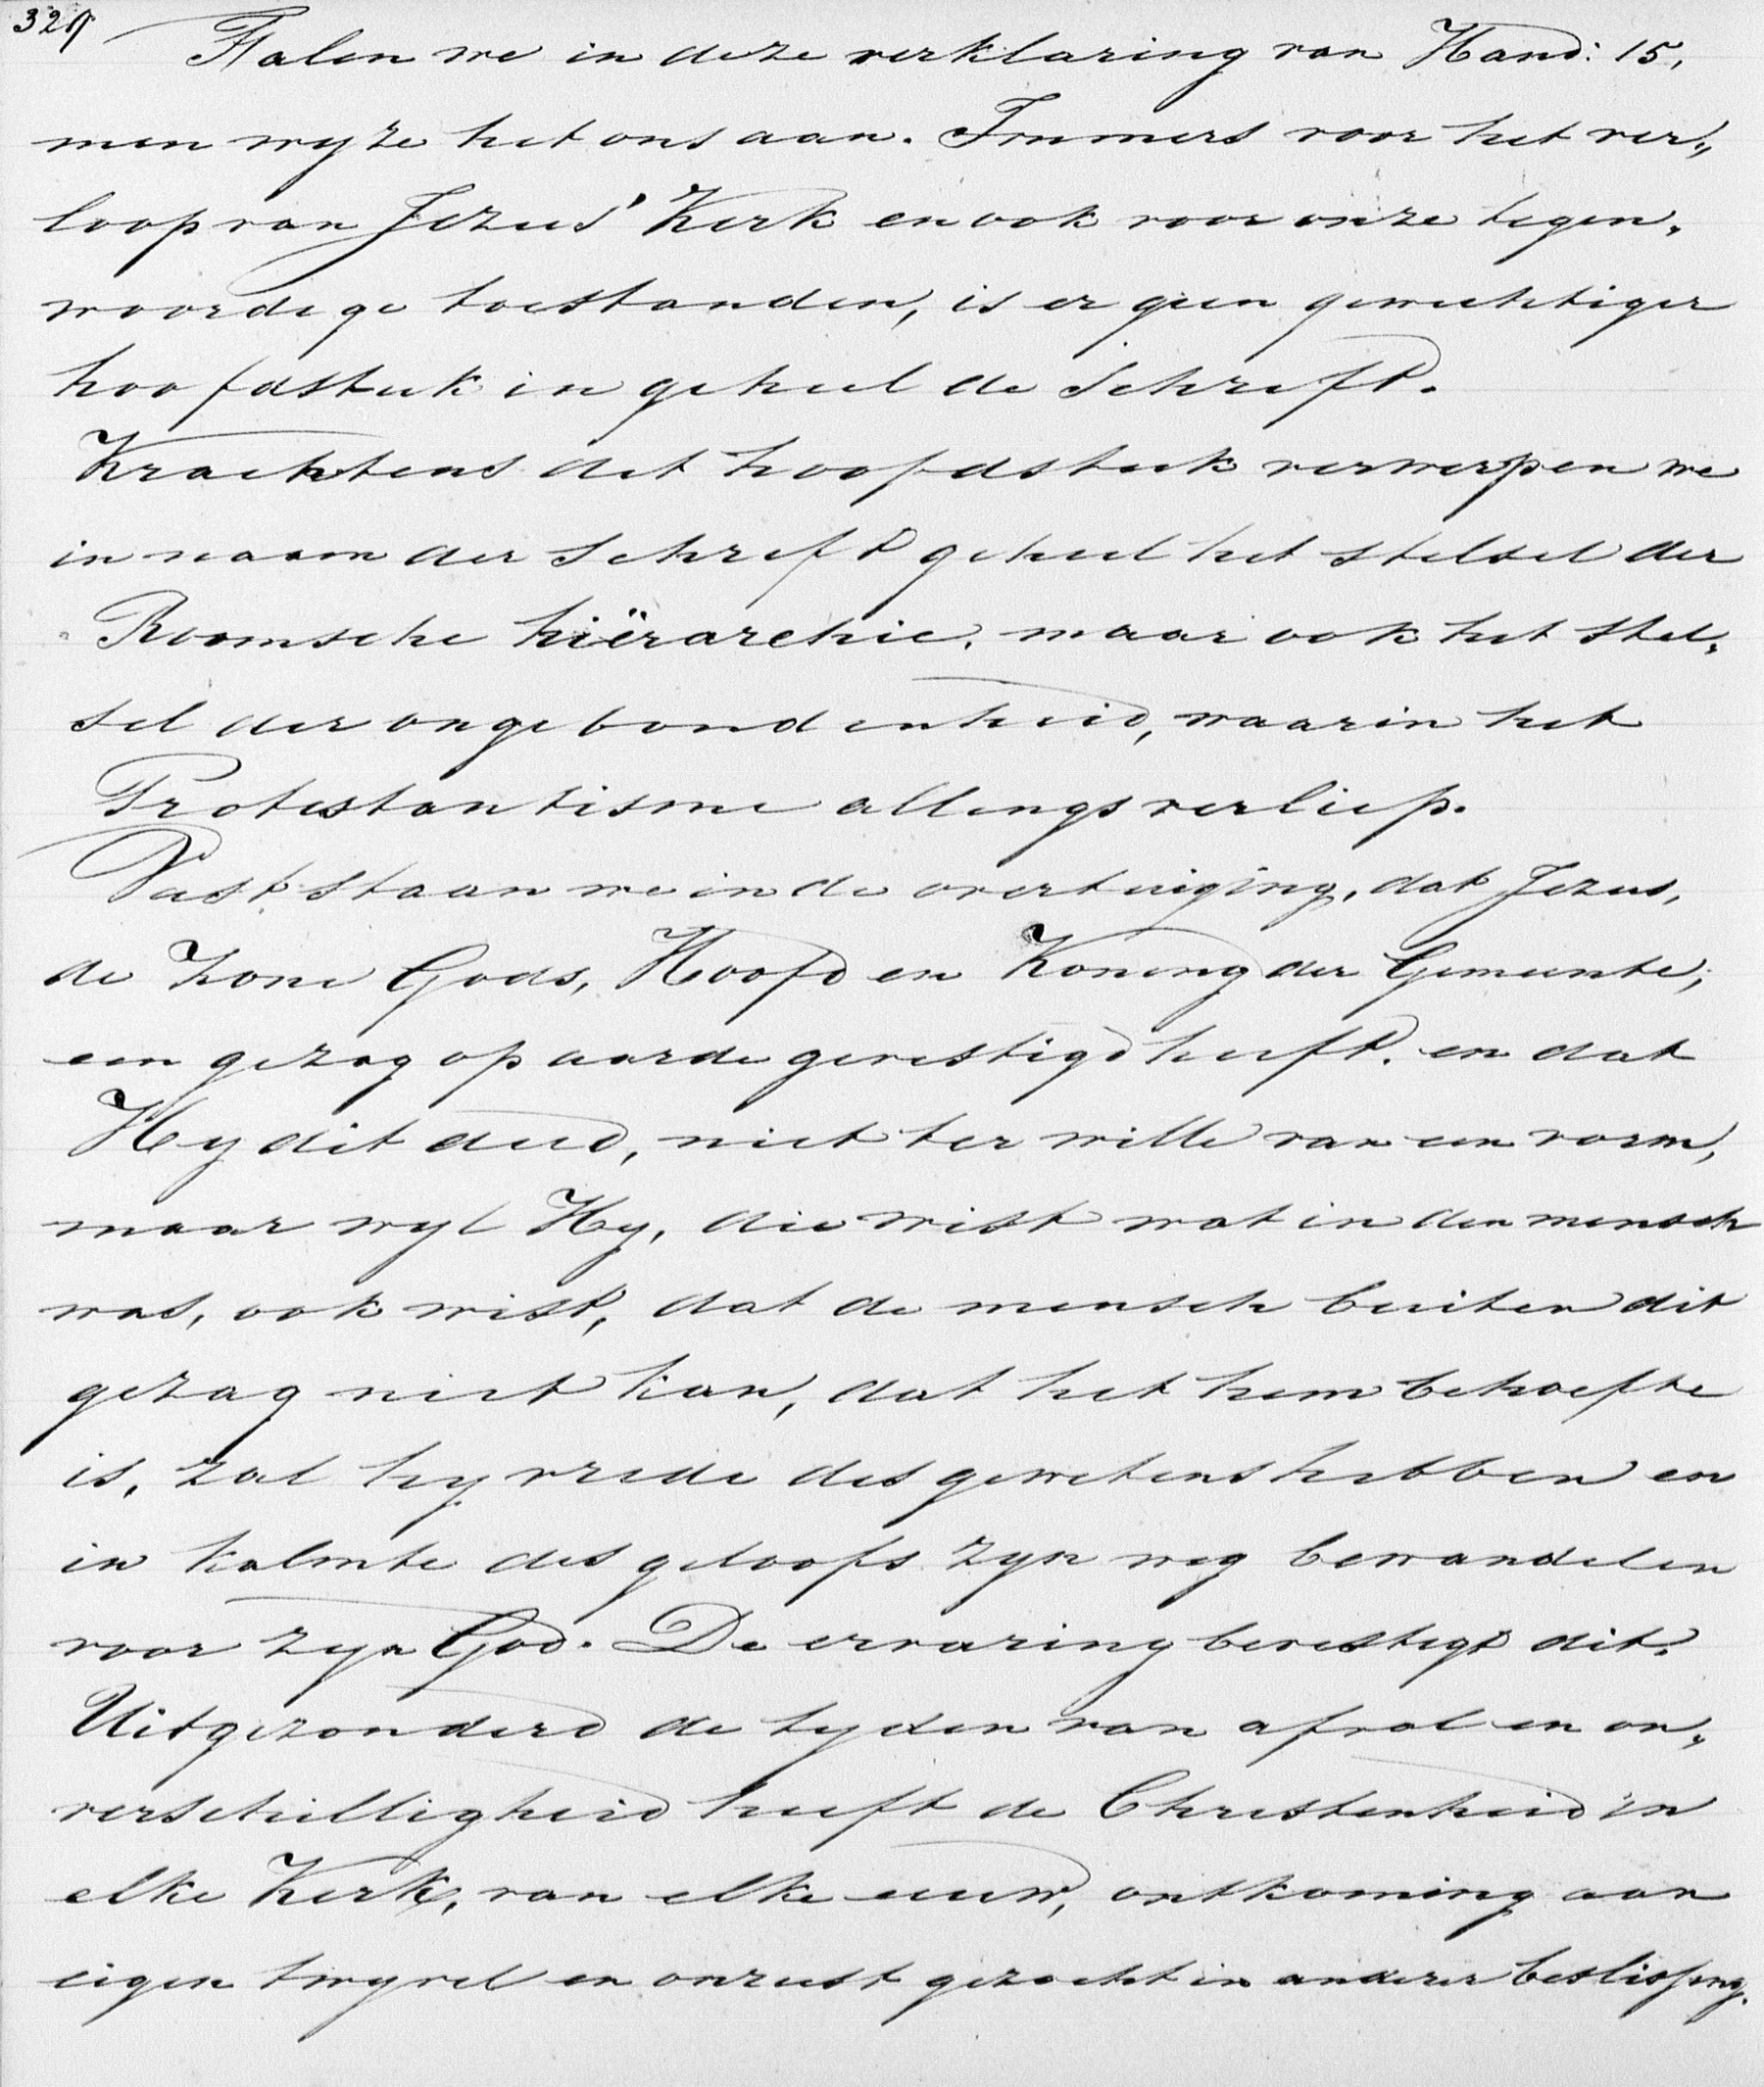 329
Falen we in deze verklaring van Hand: 15,
men wyze het ons aan. Immers voor het ver„
loop van Jezus' Kerk en ook voor onze tegen„
woordige toestanden, is er geen gewichtiger
hoofdstuk in geheel de Schrift.
Krachtens dit hoofdstuk verwerpen we
in naam der Schrift geheel het stelsel der
Roomsche hiërarchie, maar ook het stel„
sel der ongebondenheid, waarin het
Protestantisme allengs verliep.
Vast staan we in de overtuiging, dat Jezus,
de Zone Gods, Hoofd en Koning der Gemeente,
een gezag op aarde gevestigd heeft. en dat
Hy dit deed, niet ter wille van een vorm,
maar wyl Hy, die wist wat in den mensch
was, ook wist, dat de mensch buiten dit
gezag niet kan, dat het hem behoefte
is, zal hy vrede des gewetens hebben en
in kalmte des geloofs zyn weg bewandelen
voor zyn God. De ervaring bevestigt dit.
Uitgezonderd de tyden van afval en on„
verschilligheid heeft de Christenheid in
elke Kerk, van elke eeuw, ontkoming aan
eigen twyvel en onrust gezocht in anderer beslissing.